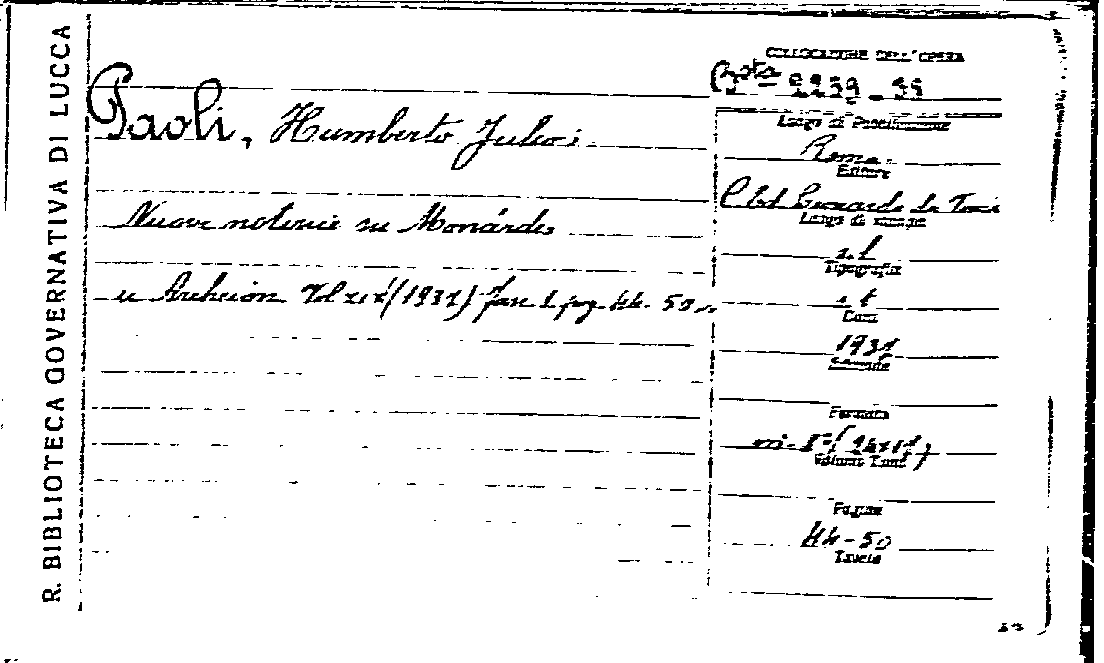 R. BIBLIOTECA GOVERNATIVA DI LUCCA
Paoli, Humberto Julio:
Nuove notizie su Monárdes
in Archeion Vol XIX (1937) fasc 1 pag. 44-50
COLLOCAZIONE DELL'OPERA
Busta 2259-
Luogo di Pubblicazione
Roma
Editore
Leonardo da Vinci
Luogo di stampa
s.l
Tipografia
s t
Data
1937
Formato
Volumi Tomi
Pagine
44-50
Tavole